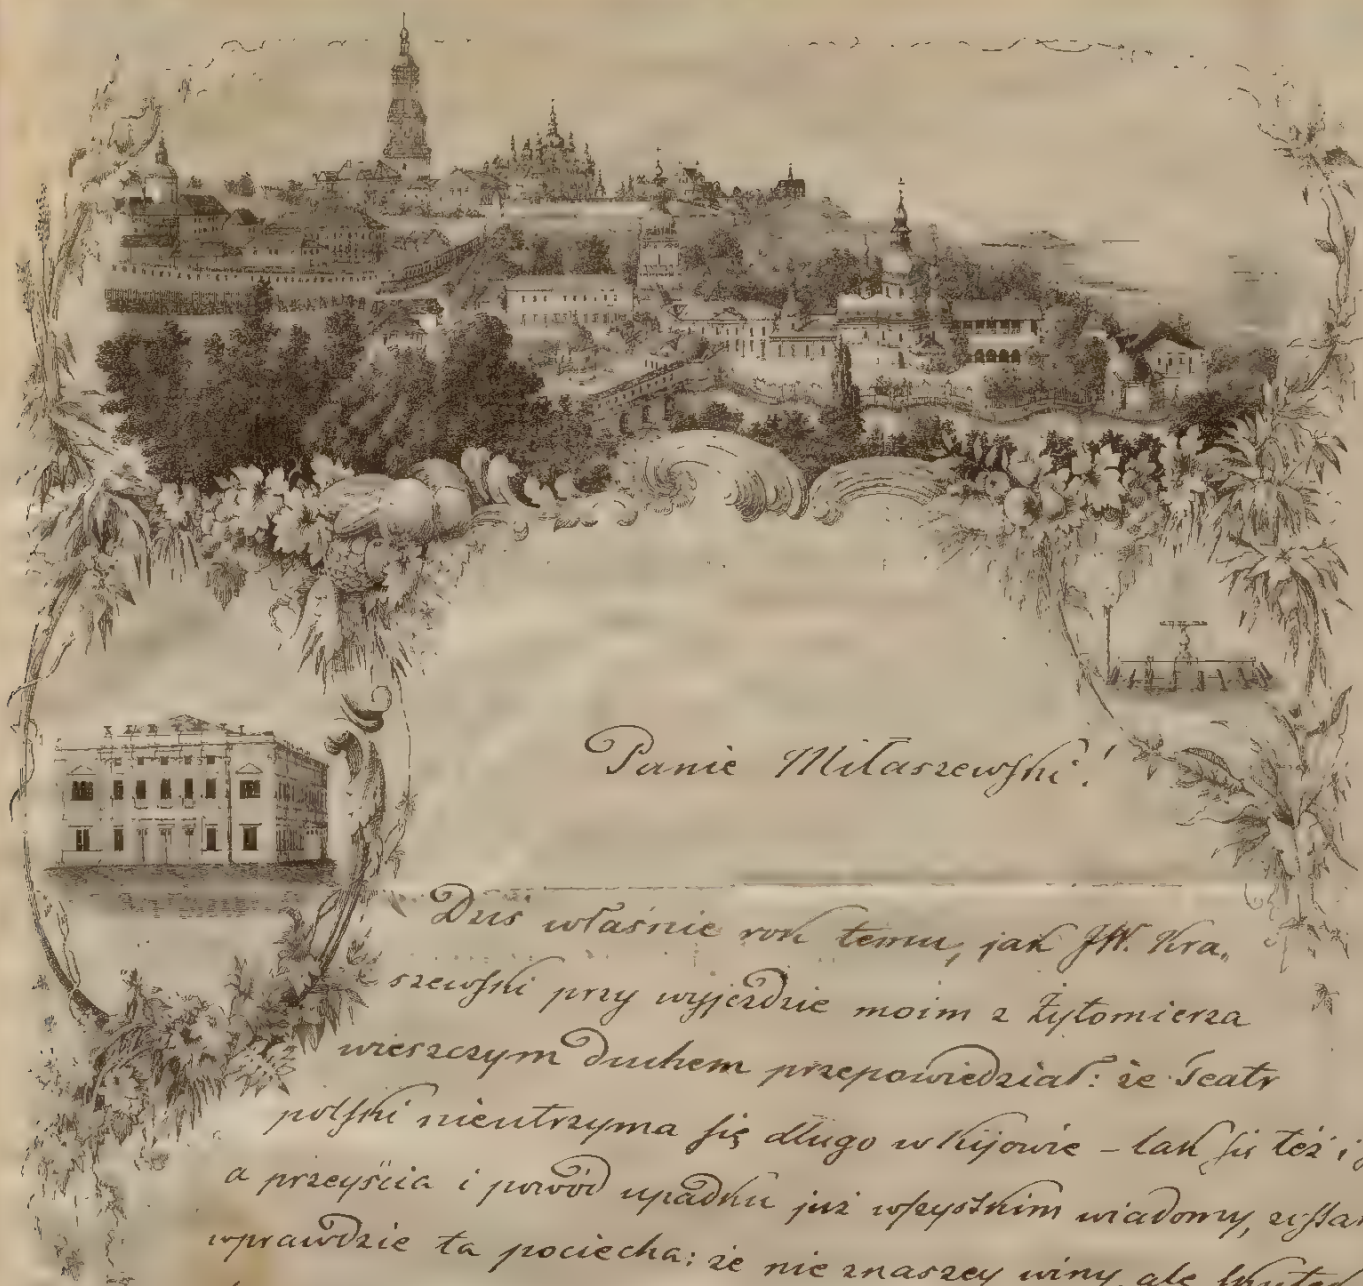 Panie Miłaszewski!
Dziś właśnie rok temu, jak JW. Kra,
szewski przy wyjeździe moim z Żytomierza
wieszczym duchem przepowiedział: że teatr
polski nieutrzyma się długo w Kijowie – tak się też i
a przeyścia i powód upadku już wszystkim wiadomy,
wprawdzie ta pociecha: że nie z naszey winy ale